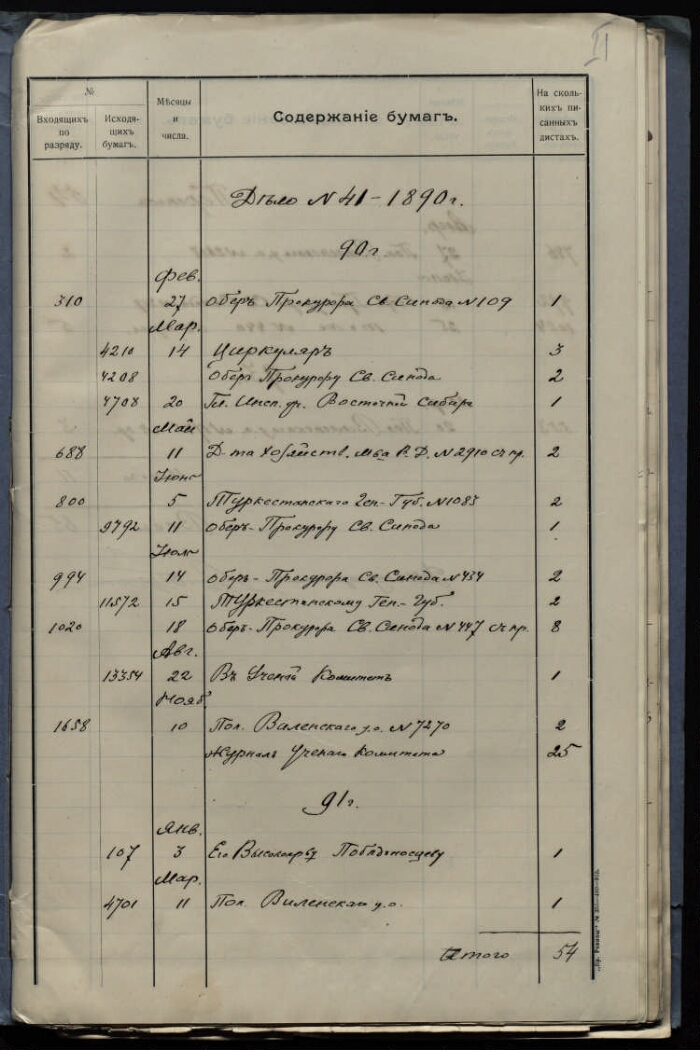 II
№
Входящихъ по разряду.
Исходящихъ бумагъ.
Мѣсяцы и числа.
Содержаніе бумагъ.
На сколькихъ писанныхъ листахъ.
Дѣло N 41 - 1890 г.
90 г
Фев.
310 27 Оберъ Прокурора Св. Синода N 109 1
Мар.
4210 14 Циркуляръ 3
4208 Оберъ Прокурору Св. Синода 2
4708 20 Гл. Инсп. уч. Восточной Сибири 1
Май
688 11 Д-та Хозяйств. М-ва В. Д. N 2910 съ пр. 2
Іюнь
800 5 Туркестанскаго Ген-Губ. N 1083 2
9792 11 Оберъ-Прокурору Св. Синода 1
Іюль
994 14 Оберъ-Прокурора Св. Синода N 434 2
11572 15 Туркестанскому Ген.-Губ. 2
1020 18 Оберъ-Прокурора Св. Синода N 447 съ пр. 8
Авг.
13354 22 Въ Ученый Комитетъ 1
Нояб.
1658 10 Поп. Виленскаго у.о. N 7270 2
Журналъ Ученаго Комитета 25
91 г.
Янв.
107 3 Его Высокопр Побѣдоносцеву 1
Мар.
4701 11 Поп. Виленскаго у.о. 1
Итого 54